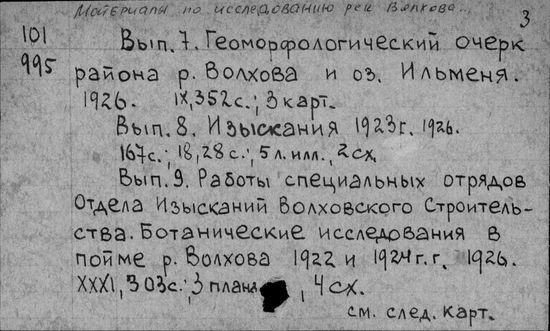 Материалы по исследованию рек Волхова...
3
101
995
Вып. 7. Геоморфологический очерк
района р. Волхова и оз. Ильменя.
1926. IX, 352с.; 3 карт.
Вып. 8. Изыскания 1923г. 1926.
167с.; 18, 28с.; 5 л. илл., 2 сх.
Вып. 9. Работы специальных отрядов
Отдела Изысканий Волховского Строитель-
ства. Ботанические исследования в
пойме р. Волхова 1922 и 1924 г.г. 1926.
XXXI, 303с.; 3 плана, 4 сх.
см. след. карт.